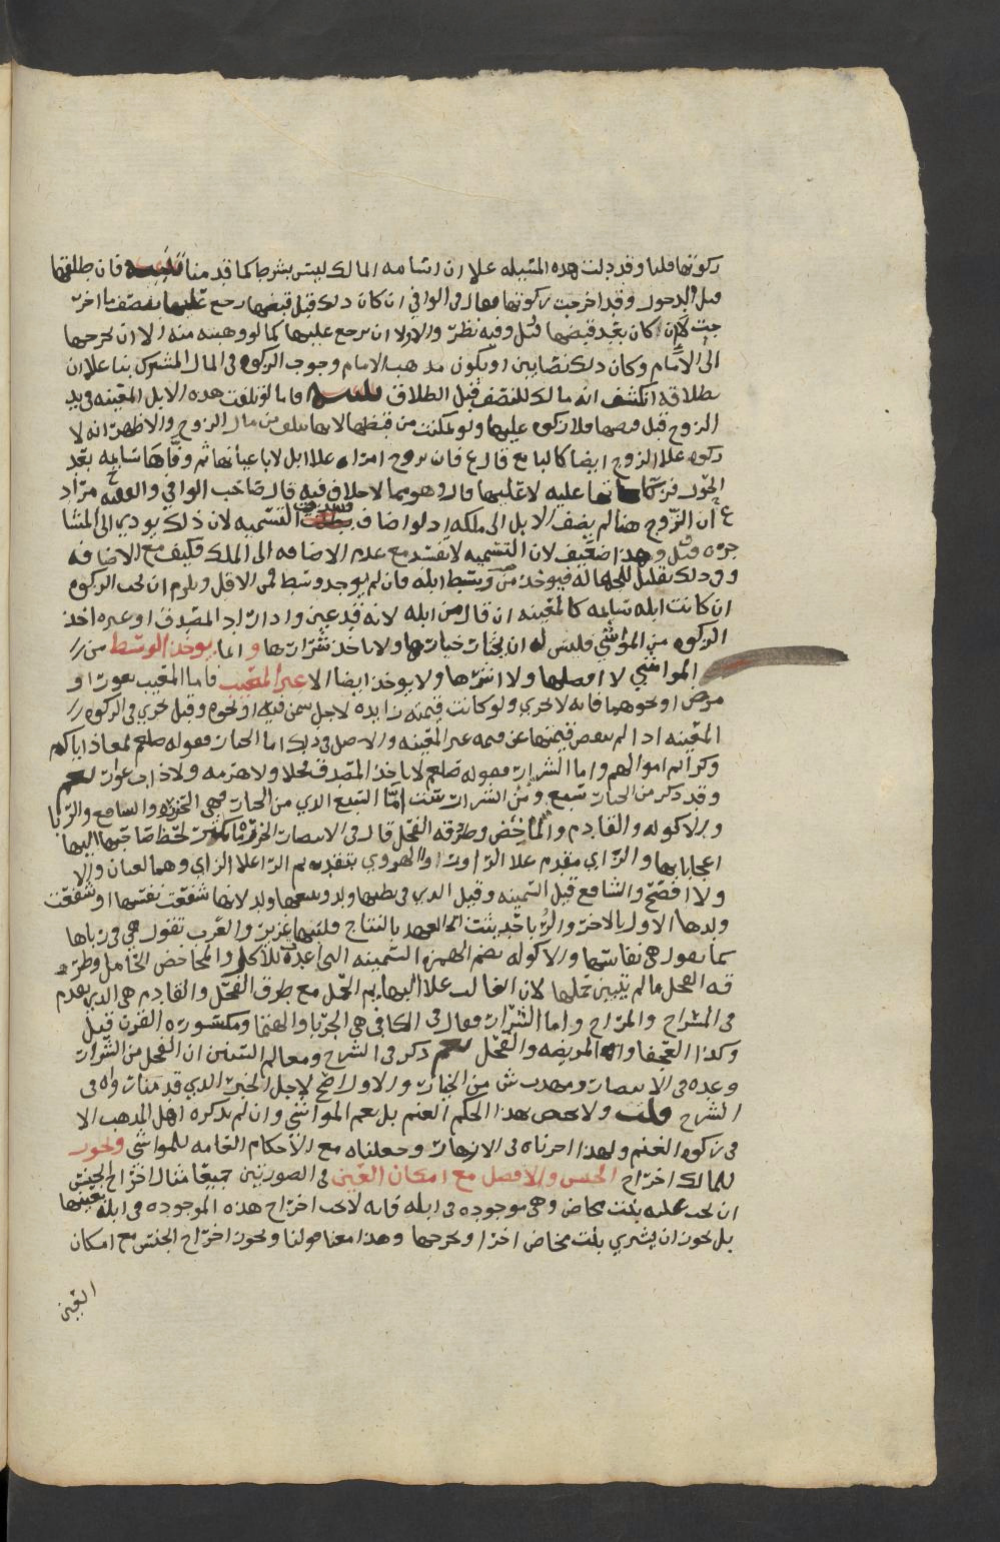 زكوتها قلنا وقد دلت هذه المسئله علا ان اسامه المالك ليس بشرط كما قدمنا فان طلقها
قبل الدخول وقد اخرجت زكوتها فقال في الوافي ان كان ذلك قبل قبضها رجع عليها بنصف ما اخر
جت وان كان بعد قبضها قيل وفيه نظر والاولا ان يرجع عليها كما لو وهبته منه الا ان يخرجها
الى الامام وكان ذلك نصابين او يكون مذهب الامام وجوب الزكوه في المال المشترك بنا علا ان
بطلاقه انكشف انه مالك للنصف قبل الطلاق فاما لو تلفت هذه الابل المعينه في يد
الزوج قبل قبضها فلا زكوه عليها ولو تمكنت من قبضها لانها تتلف من مال الزوج والاظهر انه لا
زكوه علا الزوج ايضا كالبايع فارغ فان تزوج امراه علا ابل لا باعيانها ثم وفاها سايمه بعد
الحول فزكاتها عليه لا عليها قال وهو مما لا خلاف فيه قال صاحب الوافي والفقيه ح مراد
ع ان الزوج هنا لم يضف الابل الى ملكه اذ لو اضاف فسدت التسميه لان ذلك يودي الى المشا
جره قيل وهذا ضعيف لان التسميه لا تفسد مع عدم الاضافه الى الملك فكيف مع الاضافه
وفي ذلك تقليل للجهاله فيوخذ من وسط ابله فان لم يوجد وسط فمن الاقل ويلزم ان تجب الزكوه
ان كانت ابله سايمه كالمعينه ان قال من ابله لانه قد عين واذا اراد المصدق او غيره اخذ
الزكوه من المواشي فليس له ان يختار خيارها ولا ياخذ شرارها وانما يوخذ الوسط من
المواشي لا افضلها ولا اشرها ولا يوخذ ايضا الا غير المعيب فاما المعيب بعور او
مرض او نحوهما فانه لا يجزي ولو كانت قيمته زايده لاجل سمن فيه او نحوه وقيل يجزي في الزكوه
المعينه اذا لم ينقص قيمتها عن قيمه غير المعينه والاصل في ذلك اما الخيار فقوله صلعم لمعاذ اياكم
وكرايم اموالهم واما الشرار فقوله صلعم لا ياخذ المصدق فحلا ولا هرمه ولا ذات عوار نعم
وقد ذكر من الخيار سبع ومن الشرار ست اما السبع الذي من الخيار فهي الحزره والشافع والربا
والاكوله والقادم والماخض وطروقه الفحل قال في الانتصار الحزره تحظ صاحبها اليها
اعجابا بها والزاي مقدم علا الراورا والهروي بتقديم الرا علا الزاي وهما لغتان والا
ولا افصح والشافع قيل السمينه وقيل الذي في بطنها ولد ويتبعها ولد لانها شفعت نفسها او شفعت
ولدها الاول بالاخر والربا حديثت العهد بالنتاج فلبنها غزير والعرب تقول هي في رباها
كما يقول هي نفاسها والاكوله بضم الهمزه السمينه التي اعدت للاكل والمخاض الحامل وطرو
قه الفحل ما لم يتبين حملها لان الغالب علا البهايم الحمل مع طرق الفحل والقادم هي الذي يقدم
في المسراح والمراح واما الشرار فقال في الكافي هي الجربا والهتما ومكسوره القرن قيل
وكذا العجفا والمريضه والفحل نعم ذكر في الشرح ومعالم السنن ان الفحل من الشرار
وعده في الانتصار ومهذب ش من الخيار والاول ارجح لاجل الخبر الذي قدمنا رواه في
الشرح قلت ولا يختص هذا الحكم الغنم بل يعم المواشي وان لم يذكره اهل المذهب الا
في زكوه الغنم ولهذا اخرناه في الازهار وجعلناه مع الاحكام العامه للمواشي ويجوز
للمالك اخراج الجنس والافضل مع امكان العين في الصورتين جميعا مثال اخراج الجنس
ان تجب عليه بنت مخاض وهي موجوده في ابله فانه لا يجب اخراج هذه الموجوده في ابله بعينها
بل يجوز ان يشتري بنت مخاض اخرا ويخرجها وهذا معنا قولنا ويجوز اخراج الجنس مع امكان
العين